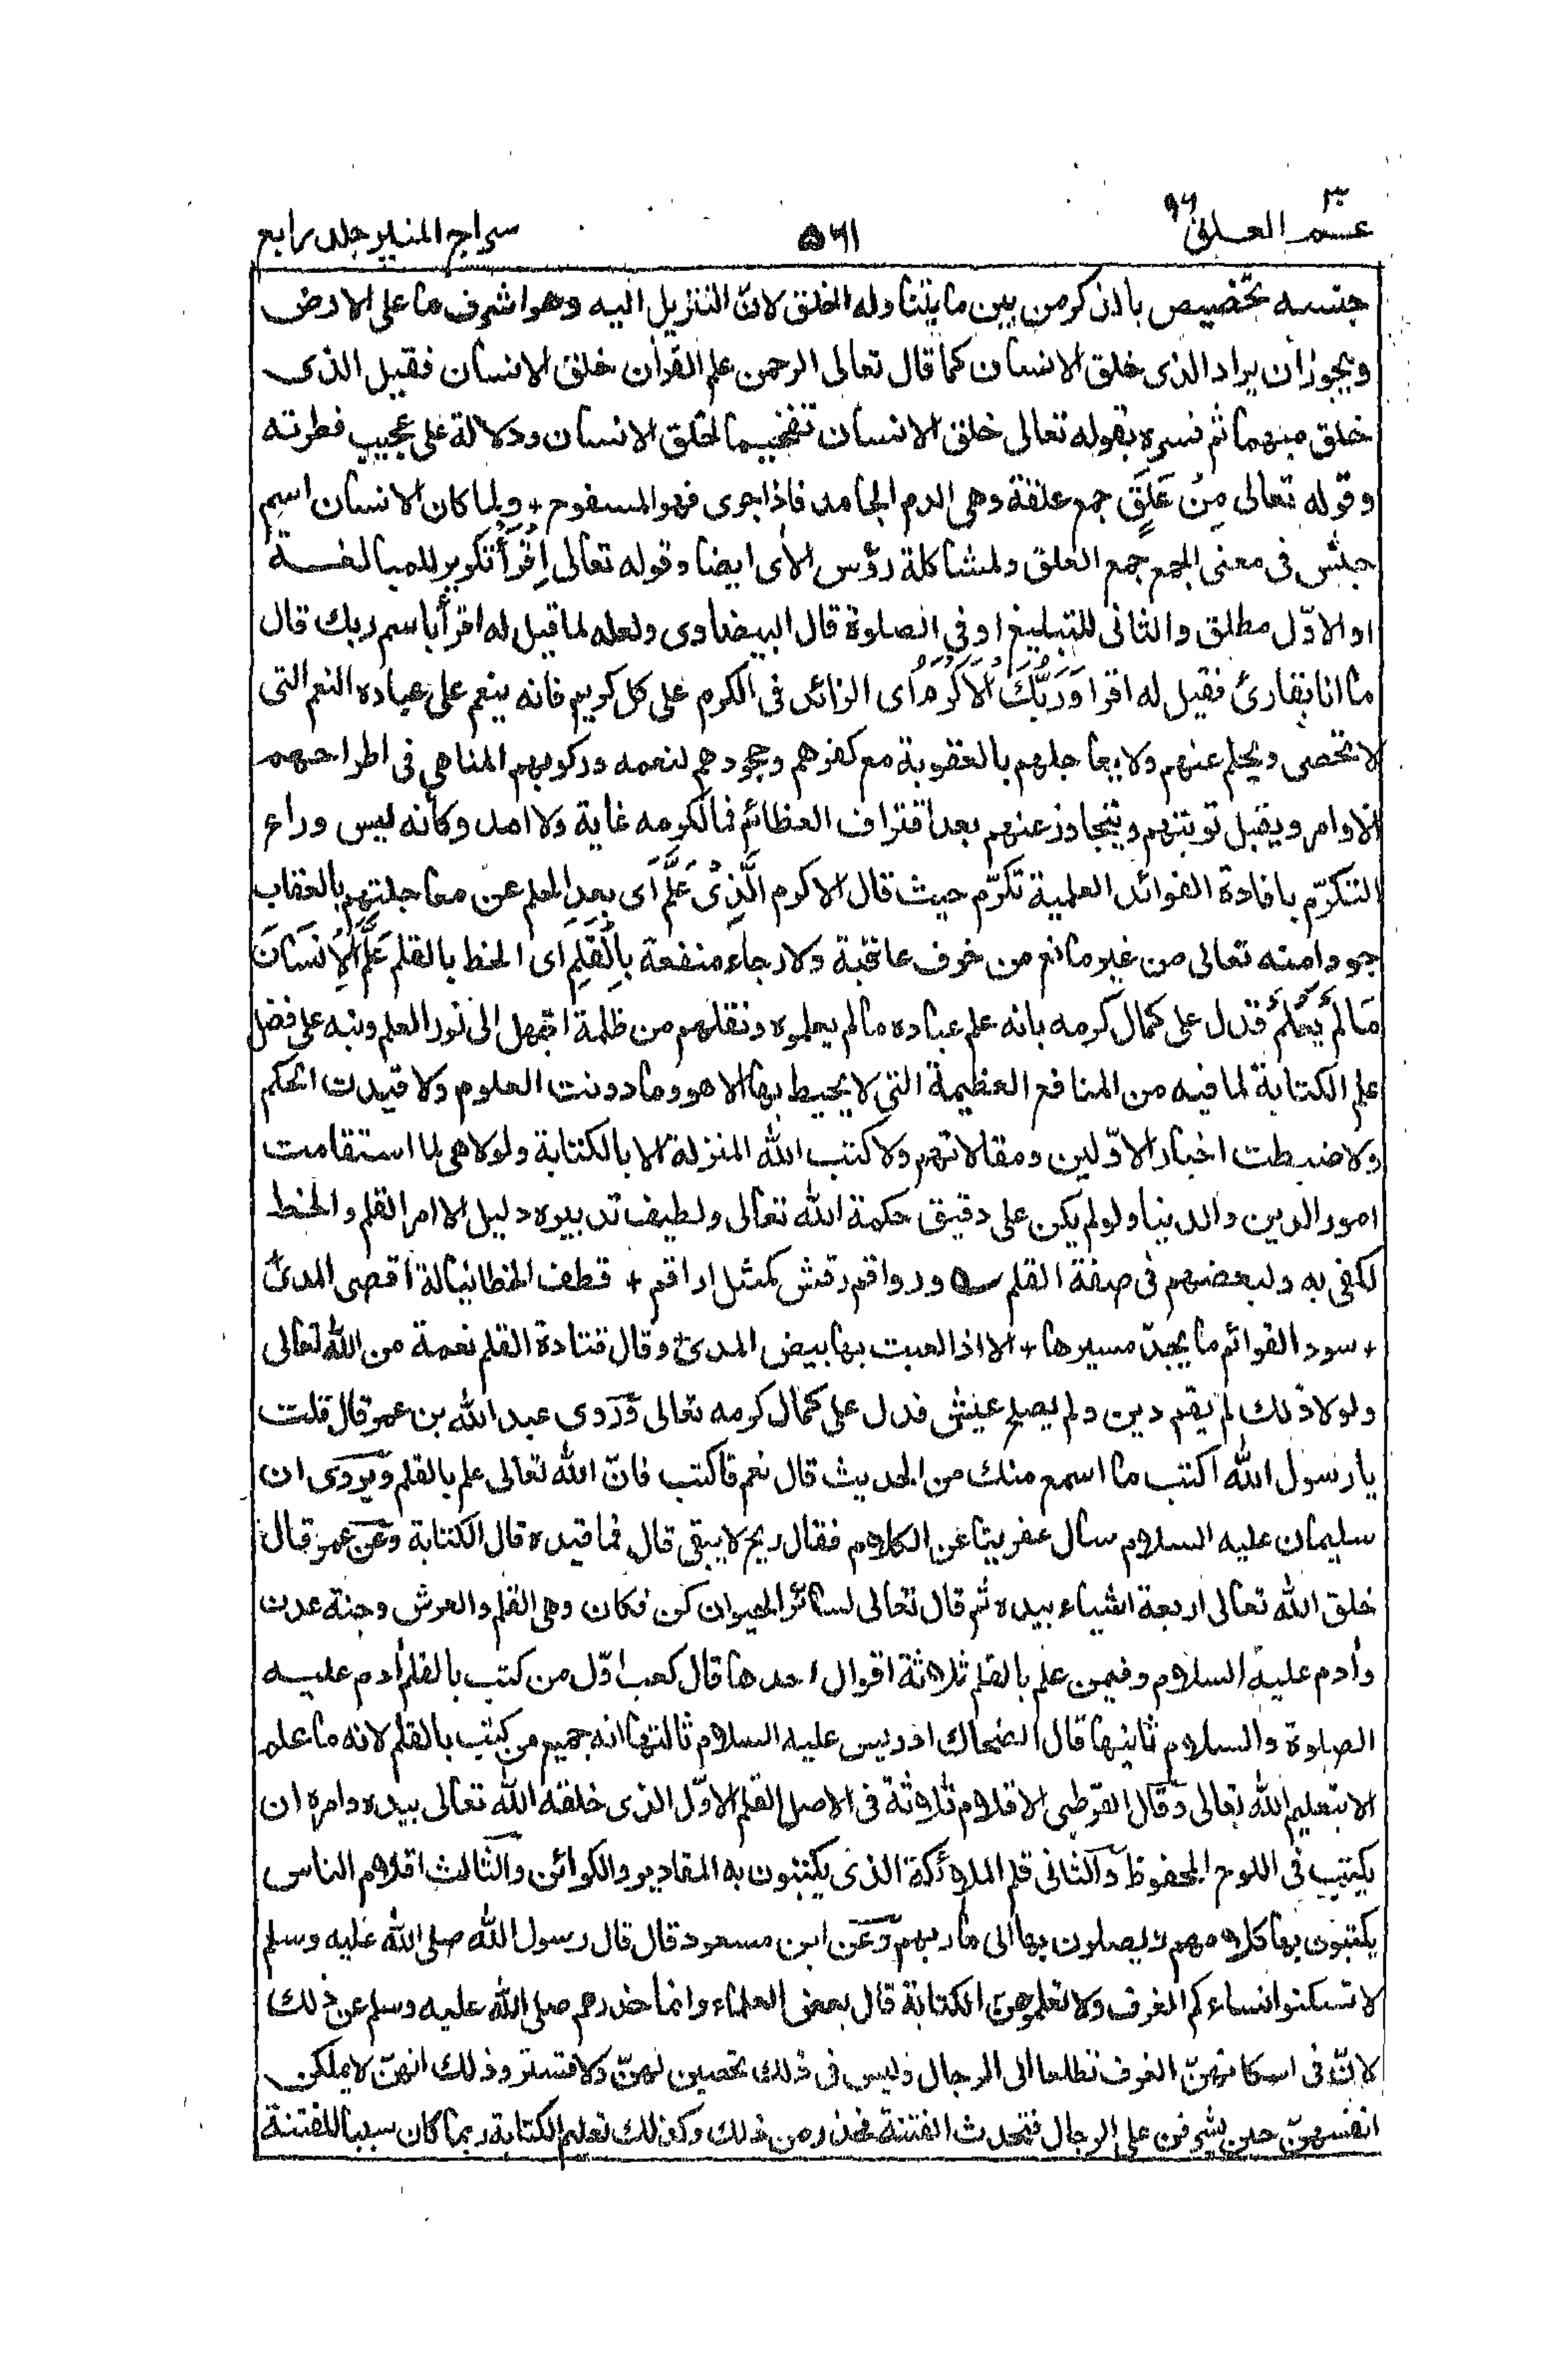 عمّ ٣٠ العلق ٩٦
٥٦١
سراج المنير جلد رابع
جنسه تخصيص بالذكر من بين ما يتناوله الخلق لانّ التنزيل اليه وهو اشرف ما على الارض
ويجوز أن يراد الذى خلق الانسان كما قال تعالى الرحمن علم القرأن خلق الانسان فقيل الذى
خلق مبهما ثم فسره بقوله تعالى خلق الانسان تفخيما لخلق الانسان ودلالة على عجيب فطرته
وقوله تعالى مِنْ عَلَقٍ جمع علقة وهى الدم الجامد فاذا جرى فهو المسفوح + ولما كان الانسان اسم
جنس فى معنى الجمع جمع العلق ولمشاكلة رؤس الأى ايضا وقوله تعالى اِقْرَأْ تكرير للمبالغة
او الاوّل مطلق والثانى للتبليغ او فى الصلوة قال البيضاوى ولعله لما قيل له اقرأ باسم ربك قال
ما انا بقارئ فقيل له اقرا وَرَبُّكَ الْاَكْرَمُ اى الزائد فى الكرم على كل كريم فانه ينعم على عباده النعم التى
لا تحصى ويحلم عنهم ولا يعاجلهم بالعقوبة مع كفرهم وجحودهم لنعمه وركوبهم المناهى فى اطراحهم
الاوامر ويقبل توبتهم ويتجاوز عنهم بعد اقتراف العظائم فما لكرمه غاية ولا امد وكأنه ليس وراء
التكرّم بافادة الفوائد العلمية تكرّم حيث قال الاكرم الَّذِىْ عَلَّمَ اى بعد الحلم عن معاجلتهم بالعقاب
جودا منه تعالى من غير مانع من خوف عاقبة ولا رجاء منفعة بِالْقَلَمِ اى الخط بالقلم عَلَّمَ الْاِنْسَانَ
مَا لَمْ يَعْلَمْ فدل على كمال كرمه بانه علم عباده ما لم يعلموه ونقلهم من ظلمة الجهل الى نور العلم ونبه على فضل
علم الكتابة لما فيه من المنافع العظيمة التى لا يحيط بها الا هو وما دونت العلوم ولا قيدت الحكم
ولا ضبطت اخبار الاوّلين ومقالاتهم ولا كتب الله المنزلة الا بالكتابة ولولا هى لما استقامت
امور الدين والدنيا ولو لم يكن على دقيق حكمة الله تعالى ولطيف تدبيره دليل الا امر القلم والخط
لكفى به ولبعضهم فى صفة القلم ــه ورواقم رقش كمثل اراقم + قطف الخطا نيالة اقصى المدىٰ
+ سود القوائم ما يجدّ مسيرها + الا اذا لعبت بها بيض المدىٰ وقال قتادة القلم نعمة من الله تعالى
ولولا ذلك لم يقم دين ولم يصلح عيش فدل على كمال كرمه تعالى وروى عبد الله بن عمر قال قلت
يا رسول الله اكتب ما اسمع منك من الحديث قال نعم فاكتب فانّ الله تعالى علم بالقلم ويروى ان
سليمان عليه السلام سال عفريتا عن الكلام فقال ريح لا يبقى قال فما قيده قال الكتابة وعن عمر قال
خلق الله تعالى اربعة اشياء بيده ثم قال تعالى لسائر الحيوان كن فكان وهى القلم والعرش وجنة عدن
وأدم عليه السلام وفيمن علم بالقلم ثلاثة اقوال احدها قال كعب اوّل من كتب بالقلم أدم عليه
الصلوة والسلام ثانيها قال الضحاك ادريس عليه السلام ثالثها انه جميع من كتب بالقلم لانه ما علم
الا بتعليم الله تعالى وقال القرطبى الاقلام ثلاثة فى الاصل القلم الاوّل الذى خلقه الله تعالى بيده وامره ان
يكتب فى اللوح المحفوظ والثانى قلم الملائكة الذى يكتبون به المقادير والكوائن والثالث اقلام الناس
يكتبون بها كلامهم ويصلون بها الى مأربهم وعن ابن مسعود قال قال رسول الله صلى الله عليه وسلم
لا تسكنوا نساءكم الغرف ولا تعلموهن الكتابة قال بعض العلماء وانما حذرهم صلى الله عليه وسلم عن ذلك
لانّ فى اسكانهنّ الغرف تطلعا الى الرجال وليس فى ذلك تحصين لهنّ ولا تستر وذلك انهنّ لا يملكن
انفسهنّ حين يشرفن على الرجال فتحدث الفتنة فحذر من ذلك وكذلك تعليم الكتابة ربما كان سببا للفتنة